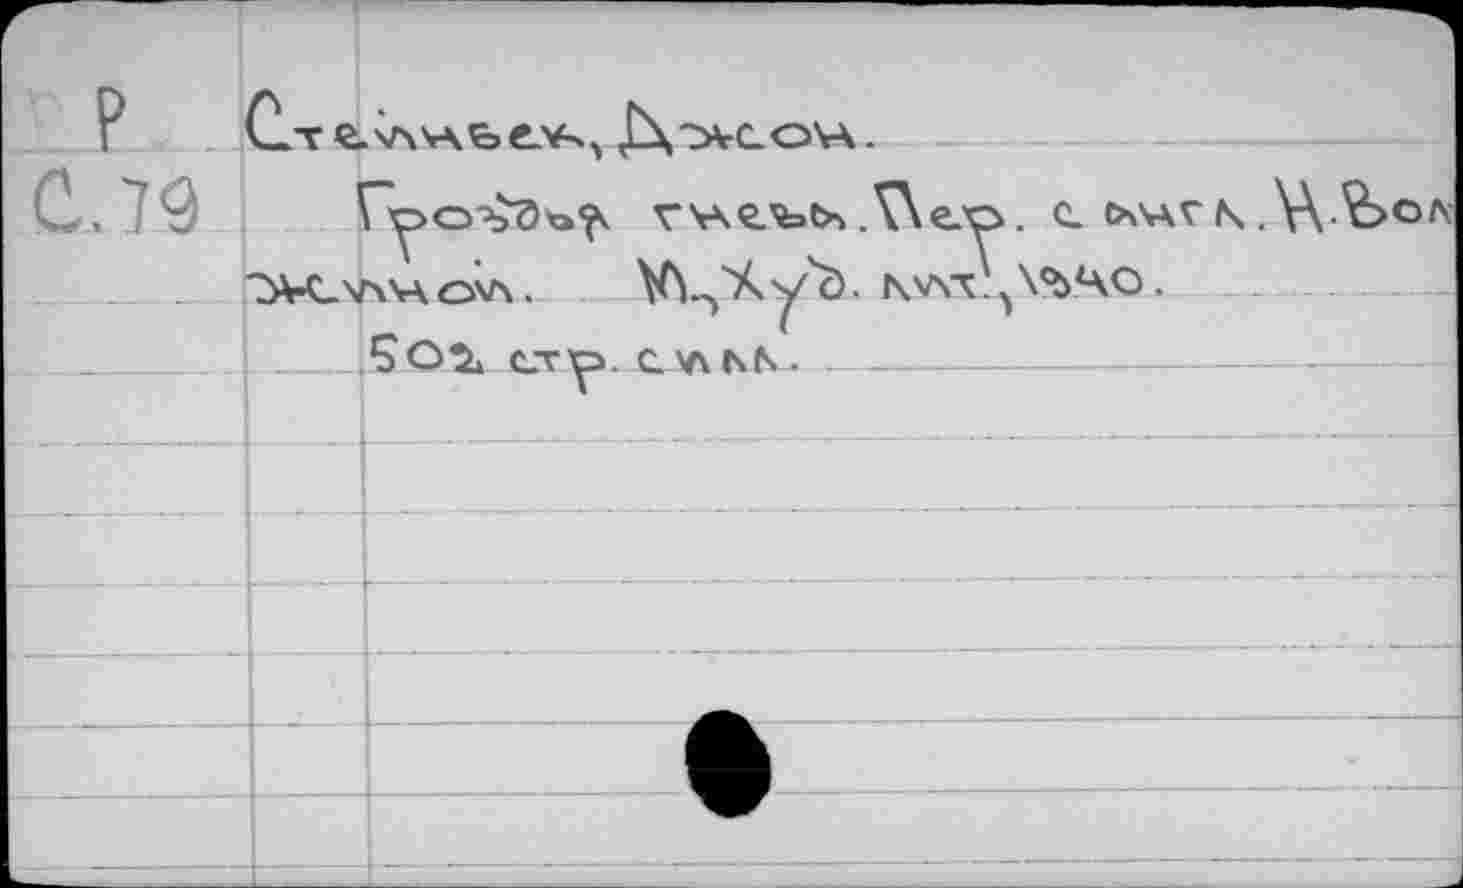 Р Стейнбек, Джсон.
С.79 Гроздья гнева. Пер. с англ. Н. Вол
жиной. М., Худ. лит., 1940.
502 стр. с илл.